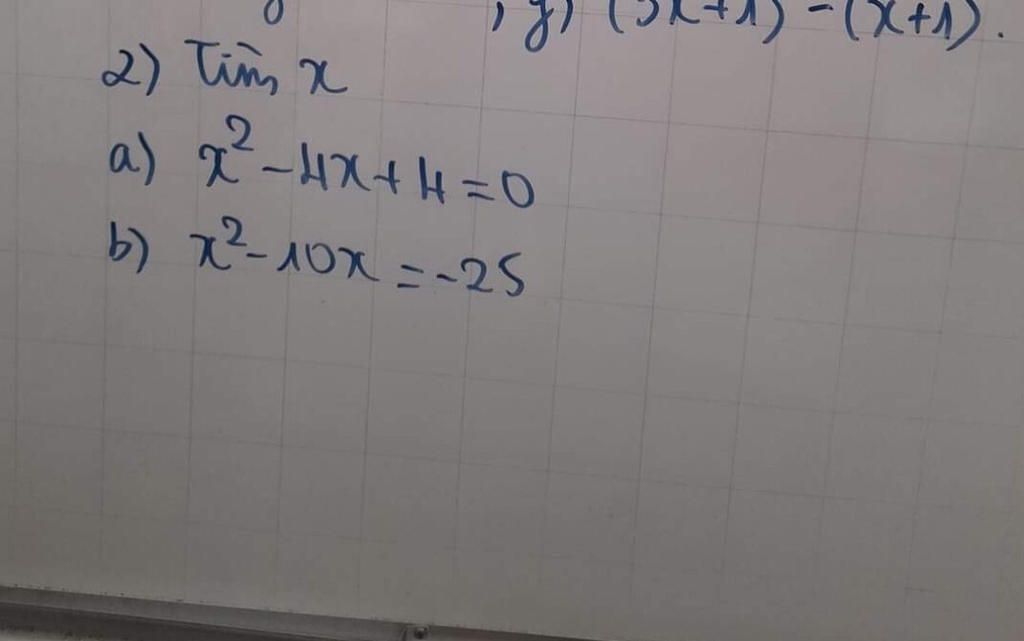 , g) (3x+1) - (x+1).
2) Tìm x
a) x² - 4x + 4 = 0
b) x² - 10x = -25